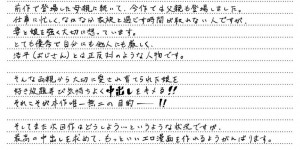 前作で登場した母親に続いて、今作では父親も登場しました。
仕事に忙しくなかなか家族と過ごす時間が取れない人ですが、
妻と娘を強く大切に想っています。
とても優秀で自分にも他人にも厳しく、
浩平(おじさん)とは正反対のような人物です。
そんな両親から大切に愛され育てられた娘を
好き放題弄び気持ちよく中出しをキメる!!
それこそが本作唯一無二の目的――!!
そしてまた次回作はどうしよう…というような状況ですが、
最高の中出しを求めて、もっといいエロ漫画を作れるようがんばります。